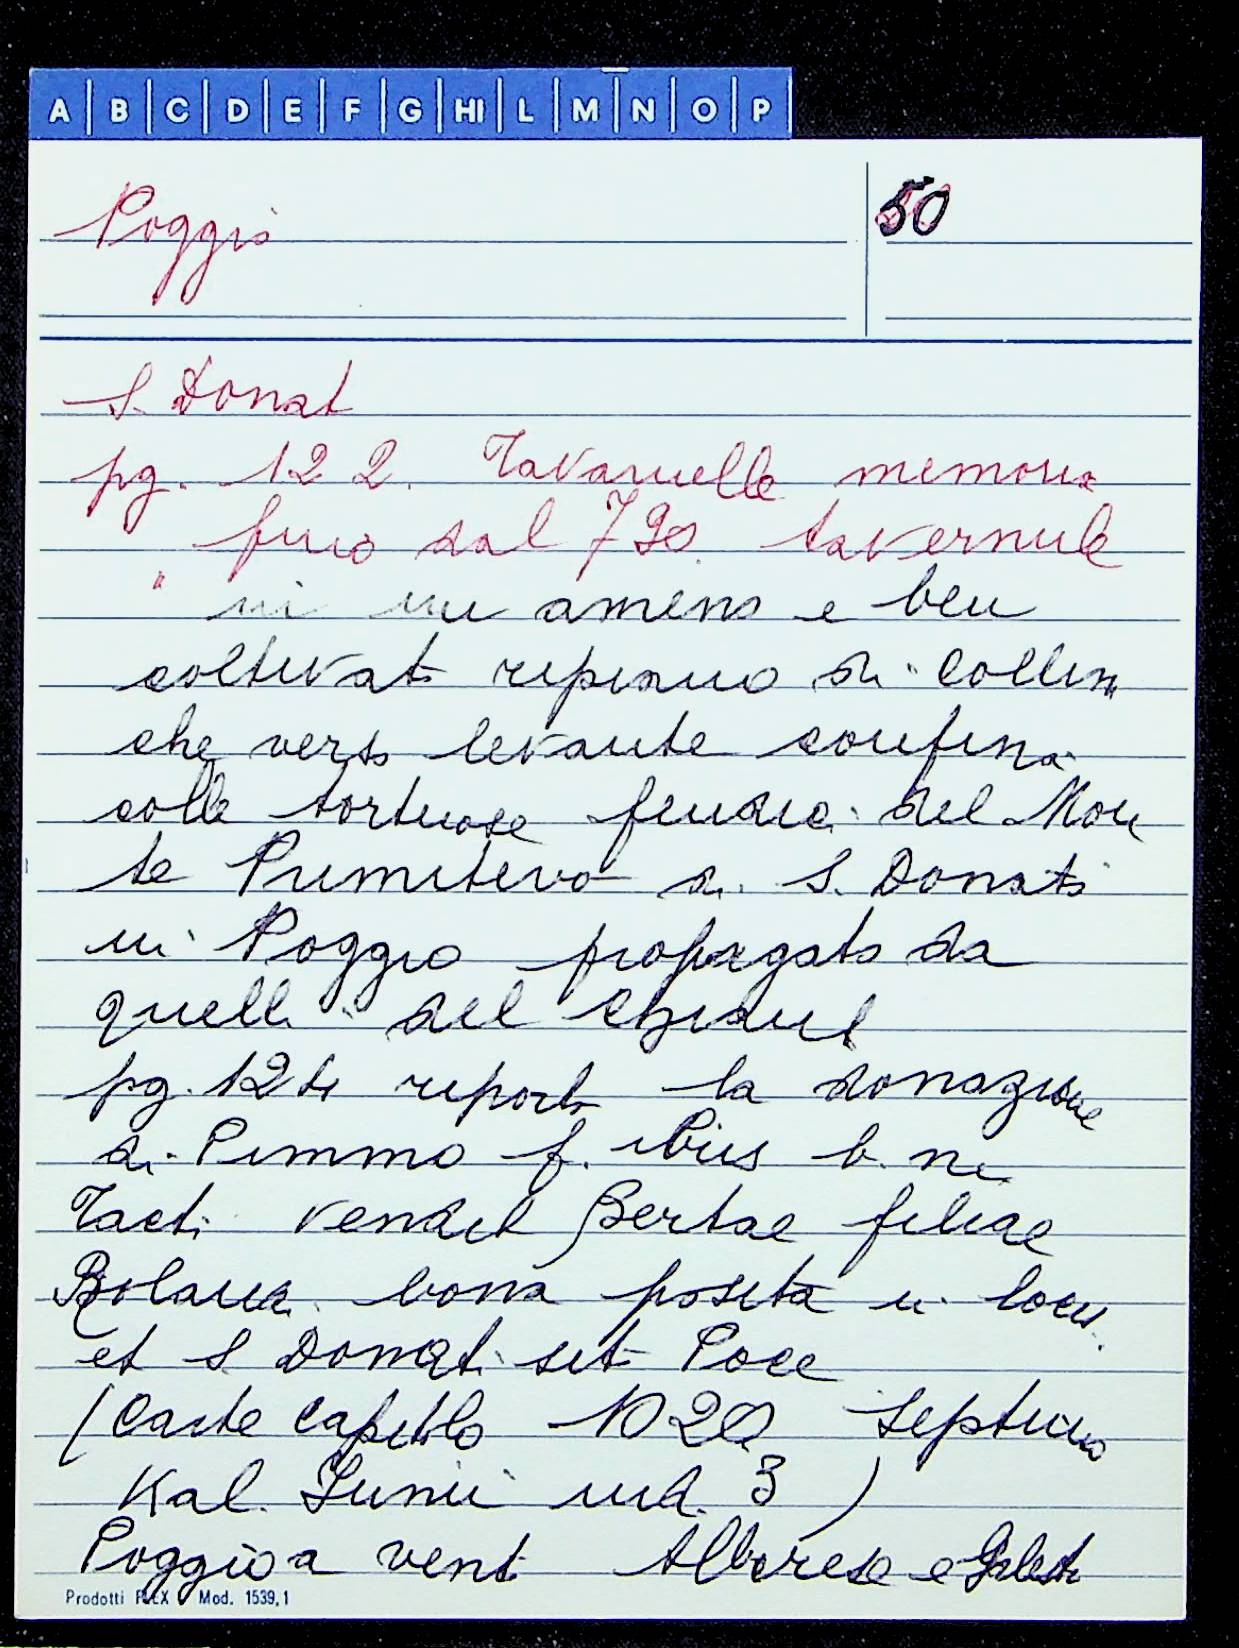 A B C D E F G HI L M N O P
Poggio
50
S. Donat
pg. 122. Tavarnelle memoria
fino dal 790 tavernule
" in un ameno e ben
coltivato ripiano di collin
che verso levante confina
colle tortuose pendici del Mon
te Primitivo di S. Donato
in Poggio propagato da
quelli del Chianti
pg. 124 riporta la donazione
di Pimmo f. b. m.
Tacti vendit Bertae filiae
bona posita in loco
et S Donati sit Poce
(Carte Capitolo 1020 septimo
Kal. Junii ind. 3)
Poggio a vent Alborese e
Prodotti FLEX Mod. 1539,1